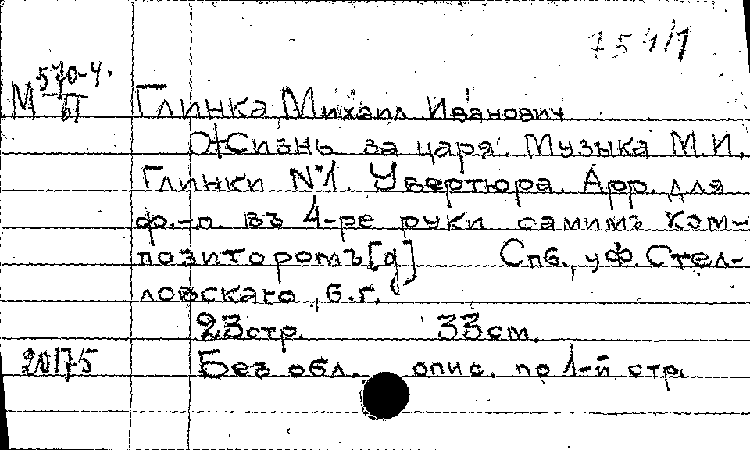 754/1
М 570-4.
БТ
Глинка Михаил Иванович
Жизнь за царя. Музыка М.И.
Глинки №1. Увертюра. Арр. для
ф.-п. въ 4-ре руки самимъ ком-
позиторомъ [g] Спб., у Ф. Стел-
ловскаго, б.г.
23 стр. 33 см.
20175 Без обл. опис. по 1-й стр.